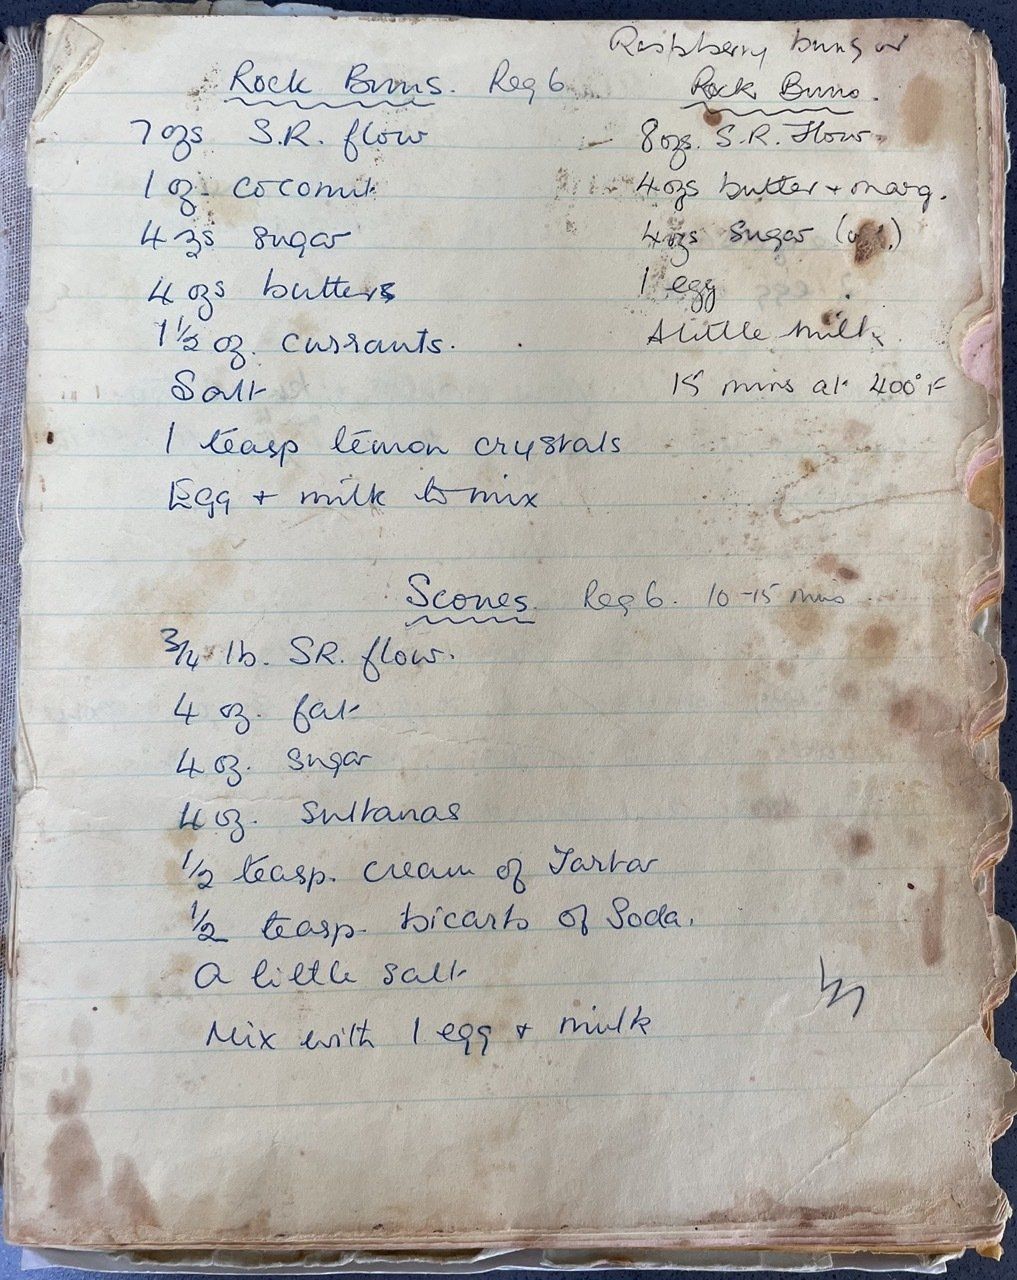 Rock Buns. Reg 6
7 ozs S.R. flour
1 oz. coconut
4 ozs sugar
4 ozs butter
1½ oz. currants.
Salt
1 teasp lemon crystals
Egg + milk to mix
Raspberry buns or
Rock Buns.
8 ozs. S.R. Flour.
4 ozs butter + marg.
4 ozs sugar
1 egg
A little milk.
15 mins at 400°F
Scones. Reg 6. 10-15 mins
¾ lb. SR. flour.
4 oz. fat
4 oz. sugar
4 oz. sultanas
½ teasp. cream of Tartar
½ teasp. bicarb of Soda.
A little salt
Mix with 1 egg + milk